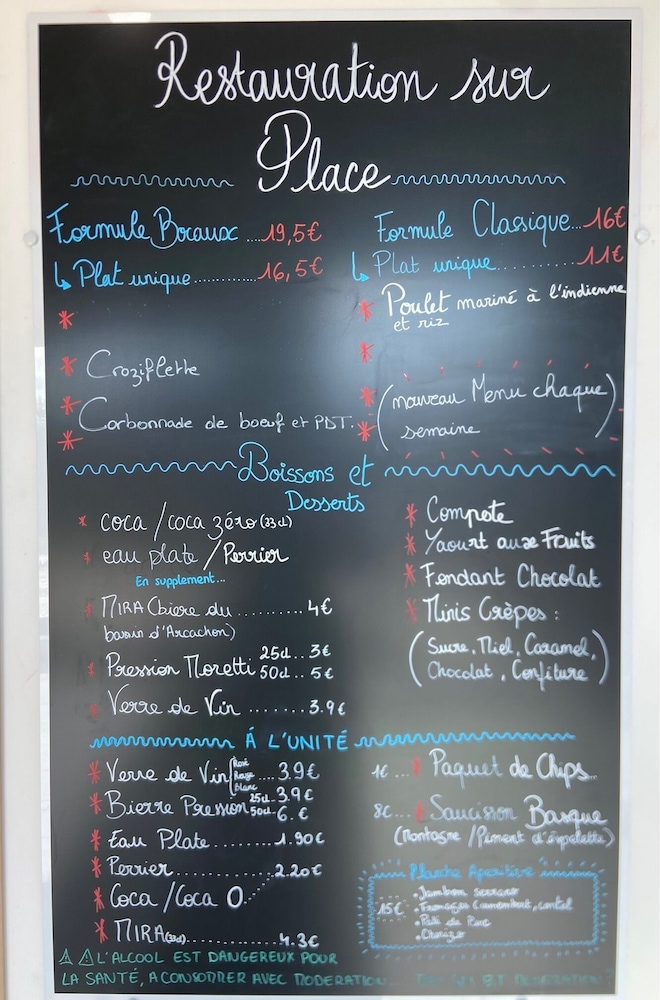 Restauration sur
Place
Formule Bocaux ....19,5€
↳ Plat unique...........16,5€
* 
* Croziflette
* Carbonnade de boeuf et PDT.
*
Formule Classique...16€
↳ Plat unique..........11€
* Poulet mariné à l'indienne
et riz
*
* (nouveau Menu chaque
* semaine)
Boissons et
Desserts
* coca / coca zéro (33cl)
* eau plate / Perrier
En supplement...
* MIRA (biere du .......... 4€
bassin d'Arcachon)
* Pression Moretti 25cl.. 3€
50cl.. 5€
* Verre de Vin ....... 3.9€
* Compote
* Yaourt aux Fruits
* Fondant Chocolat
* Minis Crèpes :
(Sucre, Miel, Caramel,
Chocolat, Confiture)
Á L'UNITÉ
* Verre de Vin Rosé Rouge Blanc .... 3.9€
* Bierre Pression 25cl. 3.9€
50cl. 6.€
* Eau Plate.........1.90€
* Perrier............2.20€
* Coca / Coca 0.....
* MIRA (33cl) ............4.3€
1€...* Paquet de Chips
8€...* Saucisson Basque
(Montagne / Piment d'espelette)
Planche Aperitive
15€
. Jambon serrano
. Fromages (camembert, comté)
. Paté de Porc
. Chorizo
⚠ ⚠ L'ALCOOL EST DANGEREUX POUR
LA SANTÉ, A CONSOMMER AVEC MODERATION.